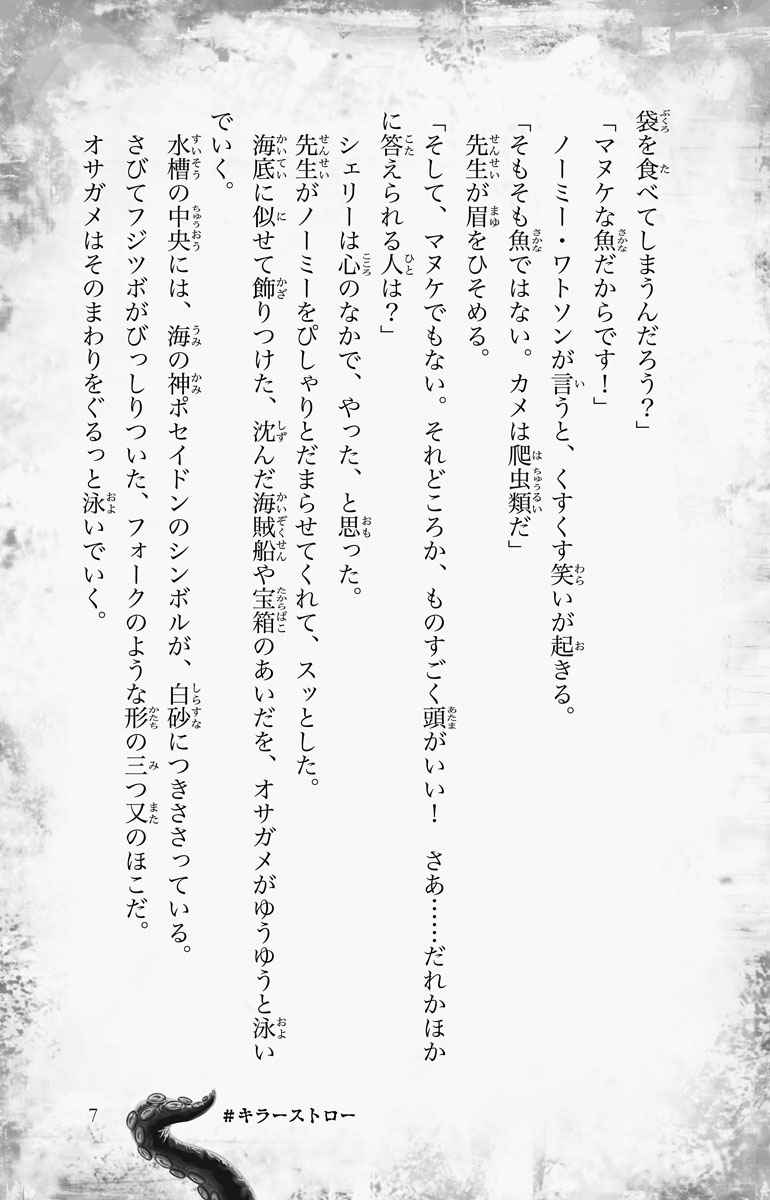 袋を食べてしまうんだろう？」
「マヌケな魚だからです！」
　ノーミー・ワトソンが言うと、くすくす笑いが起きる。
「そもそも魚ではない。カメは爬虫類だ」
　先生が眉をひそめる。
「そして、マヌケでもない。それどころか、ものすごく頭がいい！　さあ……だれかほか
に答えられる人は？」
　シェリーは心のなかで、やった、と思った。
　先生がノーミーをぴしゃりとだまらせてくれて、スッとした。
　海底に似せて飾りつけた、沈んだ海賊船や宝箱のあいだを、オサガメがゆうゆうと泳い
でいく。
　水槽の中央には、海の神ポセイドンのシンボルが、白砂につきささっている。
　さびてフジツボがびっしりついた、フォークのような形の三つ又のほこだ。
　オサガメはそのまわりをぐるっと泳いでいく。
7
#キラーストロー